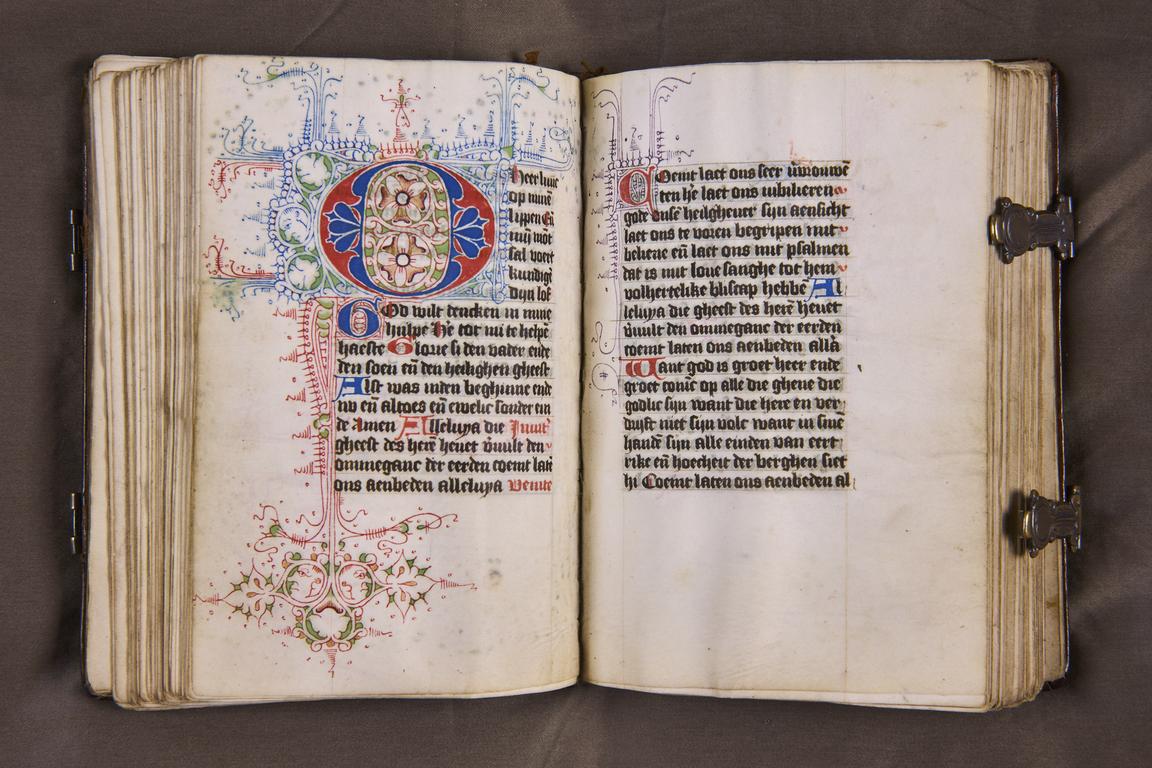 Heer luuc
op mine
lippen En
mij mōt
sal voert
kundigē
dijn lof
God wilt dencken in mine
hulpe He tot mi te helpē
haeste Glorie si den vader ende
den soen eñ den heilighen gheest
Alst was inden beghinne ende
nv eñ altoes eñ ewelic sonder ein
de Amen Alleluya die Inuit
gheest des herē heuet v̄uult den
ommeganc der eerden coemt latē
ons aenbeden alleluya Venite
Coemt laet ons seer vrouwē
ten hē laet ons iubilieren
gode onsē heilghever sijn aensicht
laet ons te voren begripen mit
beliene eñ laet ons mit psalmen
dat is mit loue sanghe tot hem
volhertelike bliscap hebbē Al
leluya die gheest des herē heuet
v̄uult den ommeganc der eerden
coemt laten ons aenbeden allā
Want god is groet heer ende
groet coninc op alle die ghene die
godlic sijn want die here en ver
drijft niet sijn volc want in sinē
handē sijn alle einden van eert
rike eñ hoecheit der berghen siet
hi Coemt laten ons aenbeden al